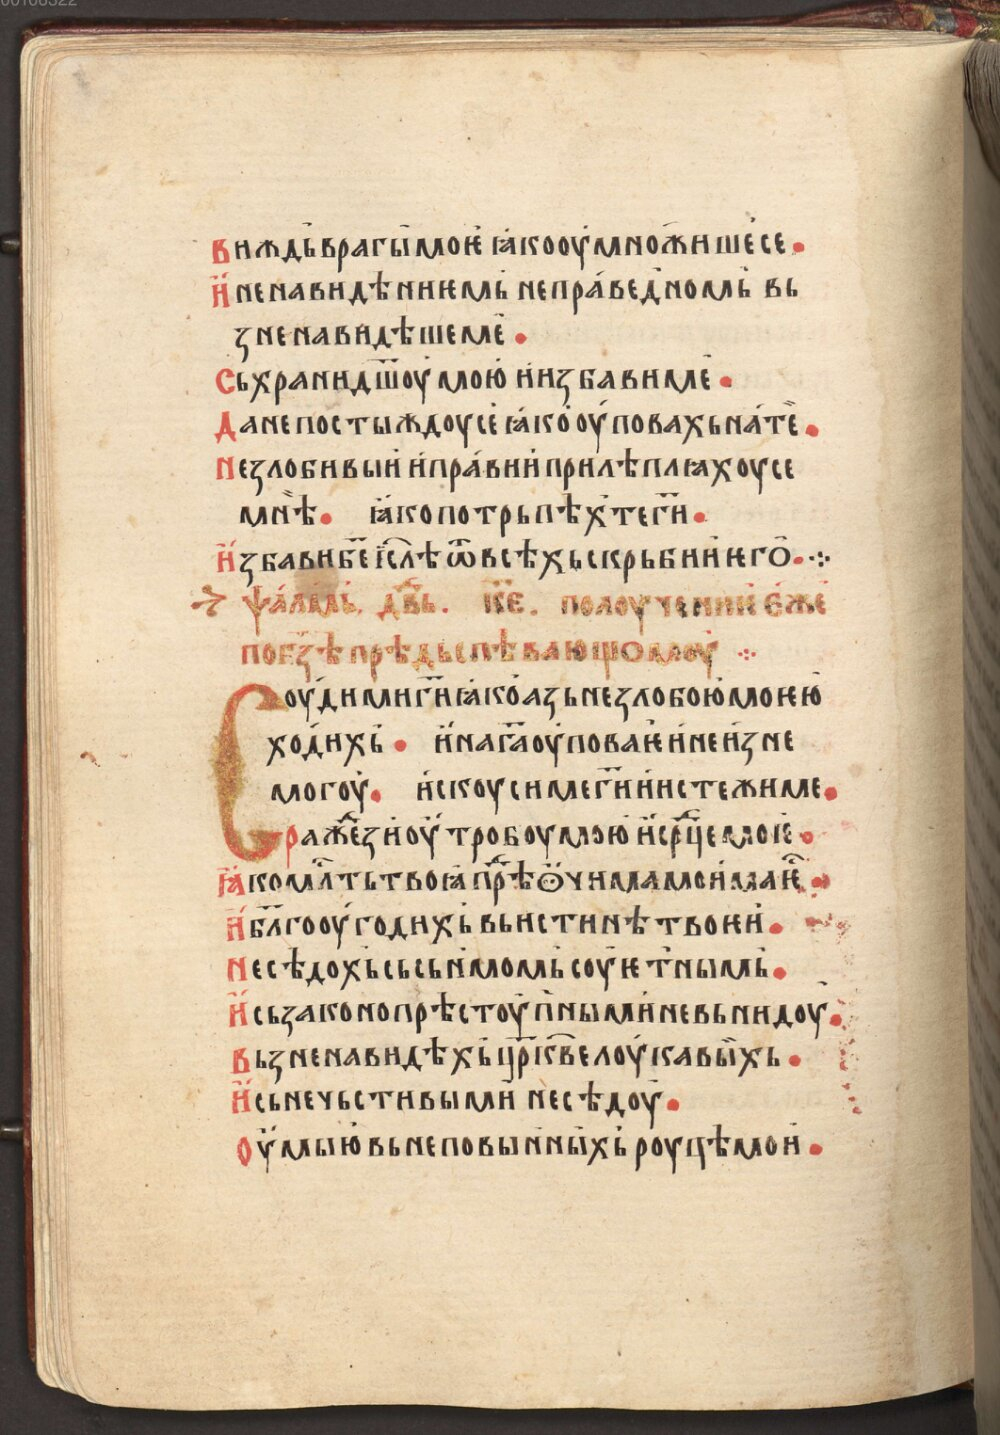 00108322
виждь врагы мое ꙗко оумножише се •
и ненавидѣниемь неправедномь вь
зненавидѣше ме •
сьхрани дш҃оу мою и избави ме •
да не постыждоу се ꙗко оуповахь на те •
незлобивыи и правии прилѣплꙗхоу се
мнѣ • ꙗко потрьпѣх те ги҃ •
избави бж҃е іи҃лѣ ѿ всѣхь скрьбии ѥго • ⁘
ѱаломь. дв҃дь. к҃е. по лоучении еже
поѥзѣ прѣдьспѣвающомоу ⁘
Соуди ми ги҃ ꙗко азь незлобою моѥю
ходихь • и на га҃ оуповаѥ и не изне
могоу • искоуси ме ги҃ и истежи ме •
ражьзи оутробоу мою и срдце моѥ •
ꙗко млть твоꙗ прѣдь ѻчима моима ѥ •
и блг҃ооугодихь вь истинѣ твоѥи •
не сѣдохь сь сьнмомь соуѥтнымь •
и сь законопрѣстоупными не вьнидоу •
вьзненавидѣхь црк҃ве лоукавыхь •
и сь нечьстивыми не сѣдоу •
оумыю вь неповынныхь роуцѣ мои •